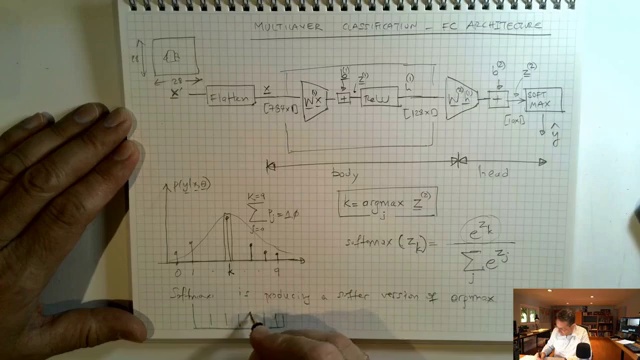 MULTILAYER CLASSIFICATION - FC ARCHITECTURE
28
28
x
Flatten
x
[784x1]
W⁽¹⁾x
b⁽¹⁾
+
z⁽¹⁾
ReLU
h⁽¹⁾
[128x1]
W⁽²⁾h⁽¹⁾
b⁽²⁾
+
z⁽²⁾
[10x1]
SOFT
MAX
ŷ
body
head
p(y|x,θ)
K=9
Σ ŷj = 1.0
j=0
0 1 k 9
k = argmax z⁽²⁾
j
softmax (zk) = e^zk / Σj e^zj
Softmax is producing a softer version of argmax